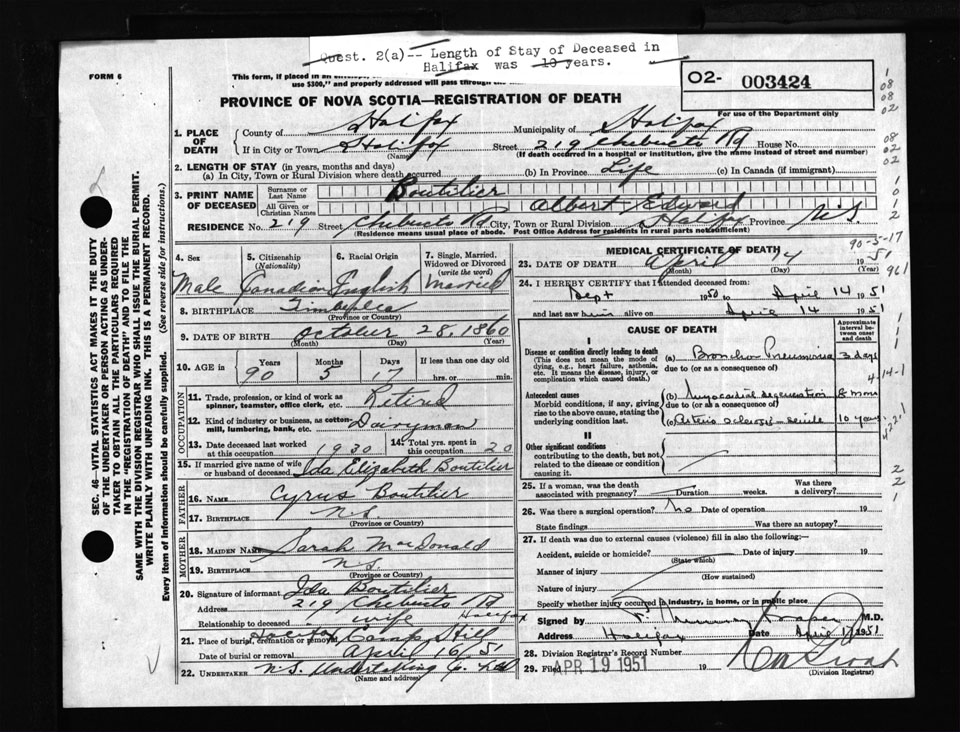 Quest. 2(a)-- Length of Stay of Deceased in
Halifax was 10 years.
FORM 6
This form, if placed in an envelope,
use $300," and properly addressed will pass through the
O2- 003424
PROVINCE OF NOVA SCOTIA—REGISTRATION OF DEATH
For use of the Department only
1. PLACE OF DEATH
County of Halifax Municipality of Halifax
If in City or Town Halifax Street 219 Chebucto Rd House No.
(Name) (If death occurred in a hospital or institution, give the name instead of street and number)
2. LENGTH OF STAY (in years, months and days)
(a) In City, Town or Rural Division where death occurred (b) In Province Life (c) In Canada (if immigrant)
3. PRINT NAME OF DECEASED
Surname or Last Name Boutilier
All Given or Christian Names Albert Edward
RESIDENCE No. 219 Street Chebucto Rd. City, Town or Rural Division Halifax Province N.S.
(Residence means usual place of abode. Post Office Address for residents in rural parts not sufficient)
4. Sex
Male
5. Citizenship (Nationality)
Canadian
6. Racial Origin
English
7. Single, Married, Widowed or Divorced (write the word)
Married
8. BIRTHPLACE
(Province or Country)
9. DATE OF BIRTH October 28, 1860
(Month) (Day) (Year)
10. AGE in Years Months Days If less than one day old
90 5 hrs. or min.
OCCUPATION
11. Trade, profession, or kind of work as spinner, teamster, office clerk, etc. Retired
12. Kind of industry or business, as cotton-mill, lumbering, bank, etc. Dairyman
13. Date deceased last worked at this occupation 1930
14. Total yrs. spent in this occupation 20
15. If married give name of wife or husband of deceased Ida Elizabeth Boutilier
FATHER
16. NAME Cyrus Boutilier
17. BIRTHPLACE N.S.
(Province or Country)
MOTHER
18. MAIDEN NAME Sarah MacDonald
19. BIRTHPLACE N.S.
(Province or Country)
20. Signature of informant Ida Boutilier
Address 219 Chebucto Rd Halifax
Relationship to deceased wife
21. Place of burial, cremation or removal Halifax Camp Hill
Date of burial or removal April 16/51
22. UNDERTAKER N.S. Undertaking Co. Ltd
(Name and address)
MEDICAL CERTIFICATE OF DEATH
90-5-17
23. DATE OF DEATH April 14 1951
(Month) (Day) (Year)
24. I HEREBY CERTIFY that I attended deceased from:
Sept 1950 to April 14 1951
and last saw him alive on April 14 1951
CAUSE OF DEATH
Approximate interval between onset and death
I
Disease or condition directly leading to death
(This does not mean the mode of dying, e.g., heart failure, asthenia, etc. It means the disease, injury, or complication which caused death.)
(a) Broncho Pneumonia 3 days
due to (or as a consequence of)
Antecedent causes
Morbid conditions, if any, giving rise to the above cause, stating the underlying condition last.
(b) Myocardial degeneration 8 mons
due to (or as a consequence of)
(c) Arterio sclerosis - senile 10 years
II
Other significant conditions
contributing to the death, but not related to the disease or condition causing it.
25. If a woman, was the death associated with pregnancy? Duration weeks. Was there a delivery?
26. Was there a surgical operation? No Date of operation 19
State findings Was there an autopsy?
27. If death was due to external causes (violence) fill in also the following:
Accident, suicide or homicide? Date of injury 19
(State which)
Manner of injury
(How sustained)
Nature of injury
Specify whether injury occurred in industry, in home, or in public place
Signed by M.D.
Address Halifax Date April 1951
28. Division Registrar's Record Number
29. Filed APR 19 1951 19
(Division Registrar)
SEC. 46—VITAL STATISTICS ACT MAKES IT THE DUTY
OF THE UNDERTAKER OR PERSON ACTING AS UNDER-
TAKER TO OBTAIN ALL THE PARTICULARS REQUIRED
IN THE "REGISTRATION OF DEATH" AND TO FILE THE
SAME WITH THE DIVISION REGISTRAR WHO SHALL ISSUE THE BURIAL PERMIT.
WRITE PLAINLY WITH UNFADING INK. THIS IS A PERMANENT RECORD.
Every item of information should be carefully supplied. (See reverse side for instructions.)